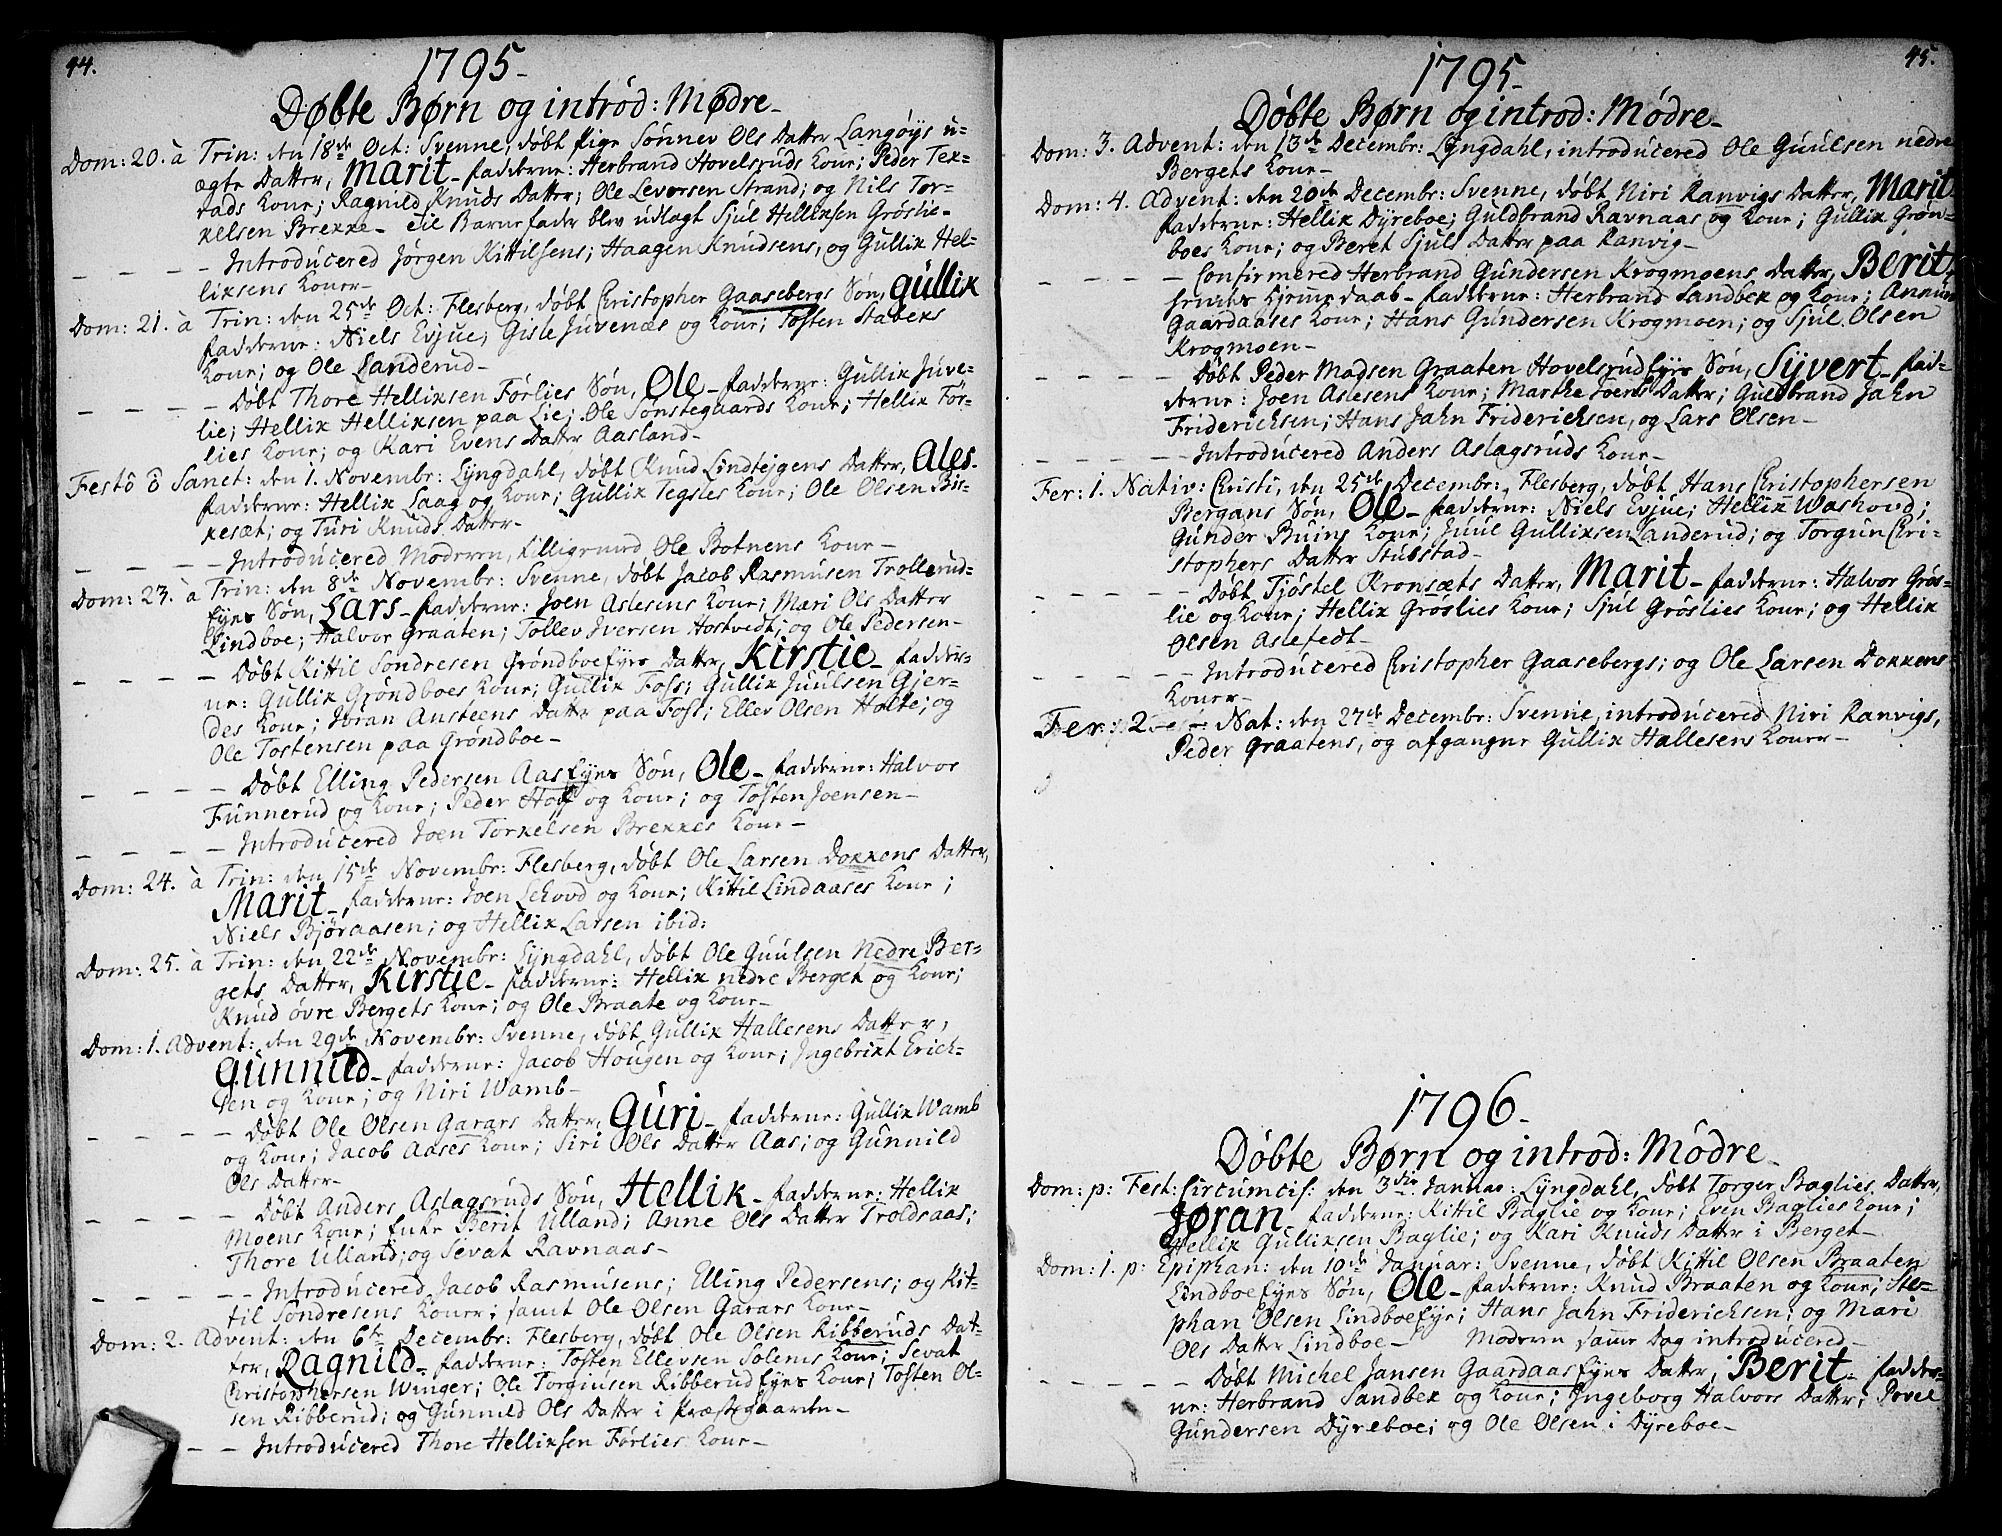 44.
1795-
Døbte Børn og introd: Mødre-
Dom: 20. à Trin: den 18de Oct: Svenne, døbt Pige Sønnev Ols Datter Langøÿs u-
ægte Datter, Marit- fadderne: Herbrand Hovelsruds Kone; Peder Tex-
rads Kone; Ragnild Knuds Datter; Ole Leversen Strand; og Nils Tor-
kelsen Brekke- til Barnefader blev udlagt Sjul Hellixsen Grøslie-
- - - - Introducered Jørgen Kittilsens; Haagen Knudsens, og Gullix Hel-
lixsens Koner-
Dom: 21. à Trin: den 25de Oct: Flesberg, døbt Christopher Gaasebergs Søn, Gullix
fadderne: Niels Evjue; Gisle Juvenæs og Kone; Tosten Stabeks
Kone; og Ole Landerud-
- - - - Døbt Thore Hellixsen Førlies Søn, Ole- fadderne: Gullix Juve-
lie; Hellix Hellixsen paa Lie; Ole Sønstegaards Kone; Hellix Før-
lies Kone; og Kari Evens Datter Aasland-
Festo O Sanct: den 1. Novembr: Lyngdahl, døbt Knud Lindtejgens Datter, Ales-
fadderne: Hellix Laag og Kone; Gullix Tegsles Kone; Ole Olsen Bis-
kesæt; og Turi Knuds Datter-
- - - - Introducered Moderen, tilligemed Ole Botnens Kone-
Dom: 23. à Trin: den 8de Novembr: Svenne, døbt Jacob Rasmusen Trollerud-
Eyes Søn, Lars- fadderne: Joen Aslesens Kone; Mari Ols Datter
Lindboe; Halvor Graaten; Tollev Iversen Hostvedt; og Ole Pedersen-
- - - - Døbt Kittil Søndresen Grøndboe Eyes Datter, Kirstie- fadder-
ne: Gullix Grøndboes Kone; Gullix Foss; Gullix Juulsen Gjer-
des Kone; Jøran Austeens Datter paa Foss; Ellev Olsen Holte; og
Ole Tostensen paa Grøndboe-
- - - - Døbt Elling Pedersen Aas Eyes Søn, Ole- fadderne: Halvor
Funnerud og Kone; Peder Hoff og Kone; og Tosten Joensen-
- - - - Introducered Joen Torkelsen Brekkes Kone-
Dom: 24. à Trin: den 15de Novembr: Flesberg, døbt Ole Larsen Dokkens Datter,
Marit- fadderne: Joen Lehovd og Kone; Kittil Lindaases Kone;
Niels Bjøraasen; og Hellix Larsen ibid:
Dom: 25. à Trin: den 22de Novembr: Lyngdahl, døbt Ole Guulsen Nedre Ber-
gets Datter, Kirstie- fadderne: Hellix nedre Berget og Kone;
Knud øvre Bergets Kone; og Ole Braate og Kone-
Dom: 1. Advent: den 29de Novembr: Svenne, døbt Gullix Hallesens Datter,
Gunnild- fadderne: Jacob Hougen og Kone; Ingebrixt Erich-
sen og Kone; og Niri Wamb-
- - - - Døbt Ole Olsen Garars Datter, Guri- fadderne: Gullix Wamb
og Kone; Jacob Aases Kone; Siri Ols Datter Aas; og Gunnild
Ols Datter-
- - - - Døbt Anders Aslagsruds Søn, Hellik- fadderne: Hellik
Moens Kone; Enke Berit Ulland; Anne Ols Datter Troldsaas;
Thore Ulland; og Sevat Ravnaas-
- - - - Introducered Jacob Rasmusens; Elling Pedersens; og Kit-
til Søndresens Koner; samt Ole Olsen Garars Kone-
Dom: 2. Advent: den 6te Decembr: Flesberg, døbt Ole Olsen Ribberuds Dat-
ter, Ragnild- fadderne: Tosten Ellevsen Solems Kone; Sevat
Christophersen Winger; Ole Torgiusen Ribberud Eyes Kone; Tosten Ol-
sen Ribberud; og Gunnild Ols Datter i Præstegaarden-
- - Introducered Thore Hellixsen Førlies Kone-
45.
1795-
Døbte Børn og introd: Mødre-
Dom: 3. Advent: den 13de Decembr: Lyngdahl, introducered Ole Guulsen nedre
Bergets Kone-
Dom: 4. Advent: den 20de Decembr: Svenne, døbt Niri Ranvigs Datter, Marit-
fadderne: Hellix Dyreboe; Guldbrand Ravnaas og Kone; Gullix Grøn-
boes Kone; og Beret Sjuls Datter paa Ranvig-
- - - - Confirmered Herbrand Gundersen Krogmoens Datter, Berit,
hjemmedaab- fadderne: Herbrand Sandbek og Kone; Annun
Gaardaases Kone; Hans Gundersen Krogmoen; og Sjul Olsen
Krogmoen-
- - - - Døbt Peder Madsen Graaten Hovelsrud Eyes Søn, Syvert- fad-
derne: Joen Aslesens Kone; Marthe Joens Datter; Guldbrand Jahn
Friderichsen; Hans Jahn Friderichsen, og Lars Olsen-
- - - - Introducered Anders Aslagsruds Kone-
Fer: 1. Nativ: Christi, den 25de Decembr: Flesberg, døbt Hans Christophersen
Bergans Søn, Ole- fadderne: Niels Evjue; Hellix Washovd;
Gunder Buins Kone; Juul Gullixsen Landerud; og Torgun Chri-
stophers Datter Stubstad-
- - - - Døbt Tjøstel Kronsæts Datter, Marit- fadderne: Halvor Grøs-
lie og Kone; Hellix Grøslies Kone; Sjul Grøslies Kone; og Hellix
Olsen Aslefedt-
- - - - Introducered Christopher Gaasebergs; og Ole Larsen Dokkens
Koner-
Fer: 2. - - Nat: den 27de Decembr: Svenne, introducered Niri Ranvigs,
Peder Graatens, og afgangne Gullix Hallesens Koner-
1796-
Døbte Børn og introd: Mødre-
Dom: p: Fest: Circumcis: den 3die Januar: Lyngdahl, døbt Torger Baglies Datter,
Jøran- fadderne: Kittil Baglie og Kone; Even Baglies Kone;
Hellix Gullixsen Baglie; og Kari Knuds Datter i Berget-
Dom: 1. p: Epiphan: den 10de Januar: Svenne, døbt Kittil Olsen Braaten
Lindboe Eyes Søn, Ole- fadderne: Knud Braaten og Kone; Ste-
phan Olsen Lindboe Eye; Hans Jahn Friderichsen; og Mari
Ols Datter Lindboe- Moderen samme Dag introducered-
- - - - Døbt Michel Jansen Gaardaas Eyes Datter, Berit- fadder-
ne: Herbrand Sandbek og Kone; Ingeborg Halvors Datter; Povel
Gundersen Dyreboe; og Ole Olsen i Dyreboe-